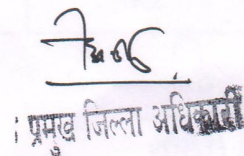 । प्रमुख जिल्ला अधिकारी